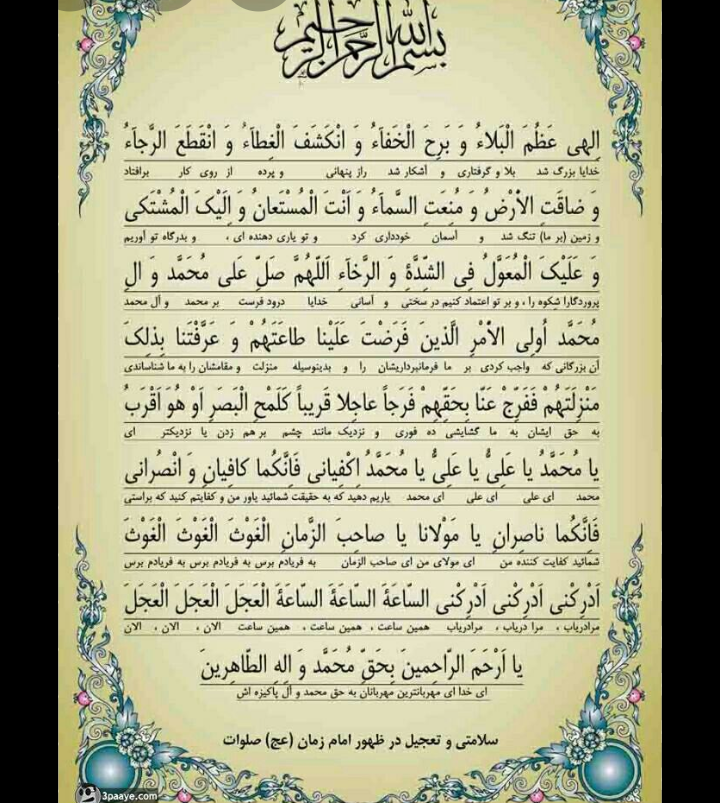 بسم الله الرحمن الرحیم
اِلهی عَظُمَ الْبَلاءُ وَ بَرِحَ الْخَفاَءُ وَ انْکَشَفَ الْغِطاَءُ وَ انْقَطَعَ الرَّجاَءُ
خدایا بزرگ شد بلا و گرفتاری و آشکار شد راز پنهانی و پرده از روی کار برافتاد
وَ ضاقَتِ الاَْرْضُ وَ مُنِعَتِ السَّماَءُ وَ اَنْتَ الْمُسْتَعانُ وَ اِلَیْکَ الْمُشْتَکی
و زمین (بر ما) تنگ شد و آسمان خودداری کرد و تو یاری دهنده ای ، و بدرگاه تو آوریم
وَ عَلَیْکَ الْمُعَوَّلُ فِی الشِّدَّةِ وَ الرَّخاَءِ اَللّهُمَّ صَلِّ عَلی مُحَمَّد وَ الِ
پروردگارا شکوه را ، و بر تو اعتماد کنیم در سختی و آسانی خدایا درود فرست بر محمد و آل محمد
مُحَمَّد اُولِی الاَْمْرِ الَّذینَ فَرَضْتَ عَلَیْنا طاعَتَهُمْ وَ عَرَّفْتَنا بِذلِکَ
آن بزرگانی که واجب کردی بر ما فرمانبرداریشان را و بدینوسیله منزلت و مقامشان را به ما شناساندی
مَنْزِلَتَهُمْ فَفَرِّجْ عَنّا بِحَقِّهِمْ فَرَجاً عاجِلا قَریباً کَلَمْحِ الْبَصَرِ اَوْ هُوَ اَقْرَبُ
به حق ایشان به ما گشایشی ده فوری و نزدیک مانند چشم بر هم زدن یا نزدیکتر ای
یا مُحَمَّدُ یا عَلِیُّ یا عَلِیُّ یا مُحَمَّدُ اِکْفِیانی فَاِنَّکُما کافِیانِ وَ انْصُرانی
محمد ای علی ای علی ای محمد یاریم دهید که به حقیقت شمائید یاور من و کفایتم کنید که براستی
فَاِنَّکُما ناصِرانِ یا مَوْلانا یا صاحِبَ الزَّمانِ الْغَوْثَ الْغَوْثَ الْغَوْثَ
شمائید کفایت کننده من ای مولای من ای صاحب الزمان به فریادم برس به فریادم برس به فریادم برس
اَدْرِکْنی اَدْرِکْنی اَدْرِکْنی السّاعَةَ السّاعَةَ السّاعَةَ الْعَجَلَ الْعَجَلَ الْعَجَلَ
مرادریاب ، مرا دریاب ، مرادریاب همین ساعت ، همین ساعت ، همین ساعت الان ، الان ، الان
یا اَرْحَمَ الرّاحِمینَ بِحَقِّ مُحَمَّد وَ الِهِ الطّاهِرینَ
ای خدا ای مهربانترین مهربانان به حق محمد و آل پاکیزه اش
سلامتی و تعجیل در ظهور امام زمان (عج) صلوات
3paaye.com